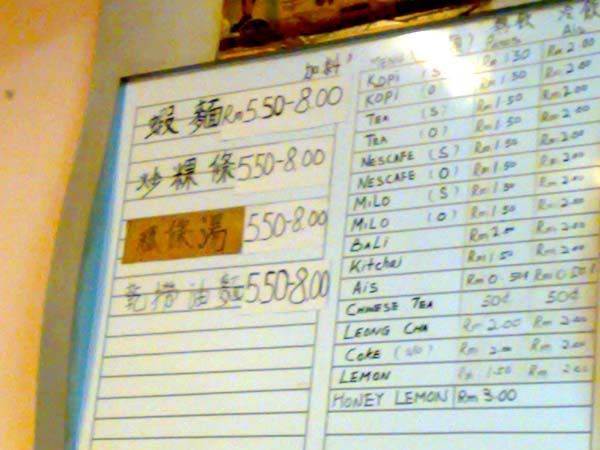 加料
蝦麵 RM 5.50-8.00
炒粿條 5.50-8.00
粿條湯 5.50-8.00
乾撈油麵 5.50-8.00
Ais
KOPI (S) Rm 1.50 Rm 2.00
KOPI (O) Rm 1.50 Rm 2.00
TEA (S) Rm 1.50 Rm 2.00
TEA (O) Rm 1.50 Rm 2.00
NESCAFE (S) Rm 1.50 Rm 2.00
NESCAFE (O) Rm 1.50 Rm 2.00
MILO (S) Rm 1.50 Rm 2.00
MILO (O) Rm 1.50 Rm 2.00
BALI Rm 2.00 Rm 2.00
Kitchai Rm 1.50 Rm 2.00
Ais Rm 0.50 Rm 0.50
CHINESE TEA 50¢ 50¢
LEONG CHA Rm 2.00 Rm 2.00
COKE Rm 2.00 Rm 2.00
LEMON Rm 1.50 Rm 2.00
HONEY LEMON Rm 3.00